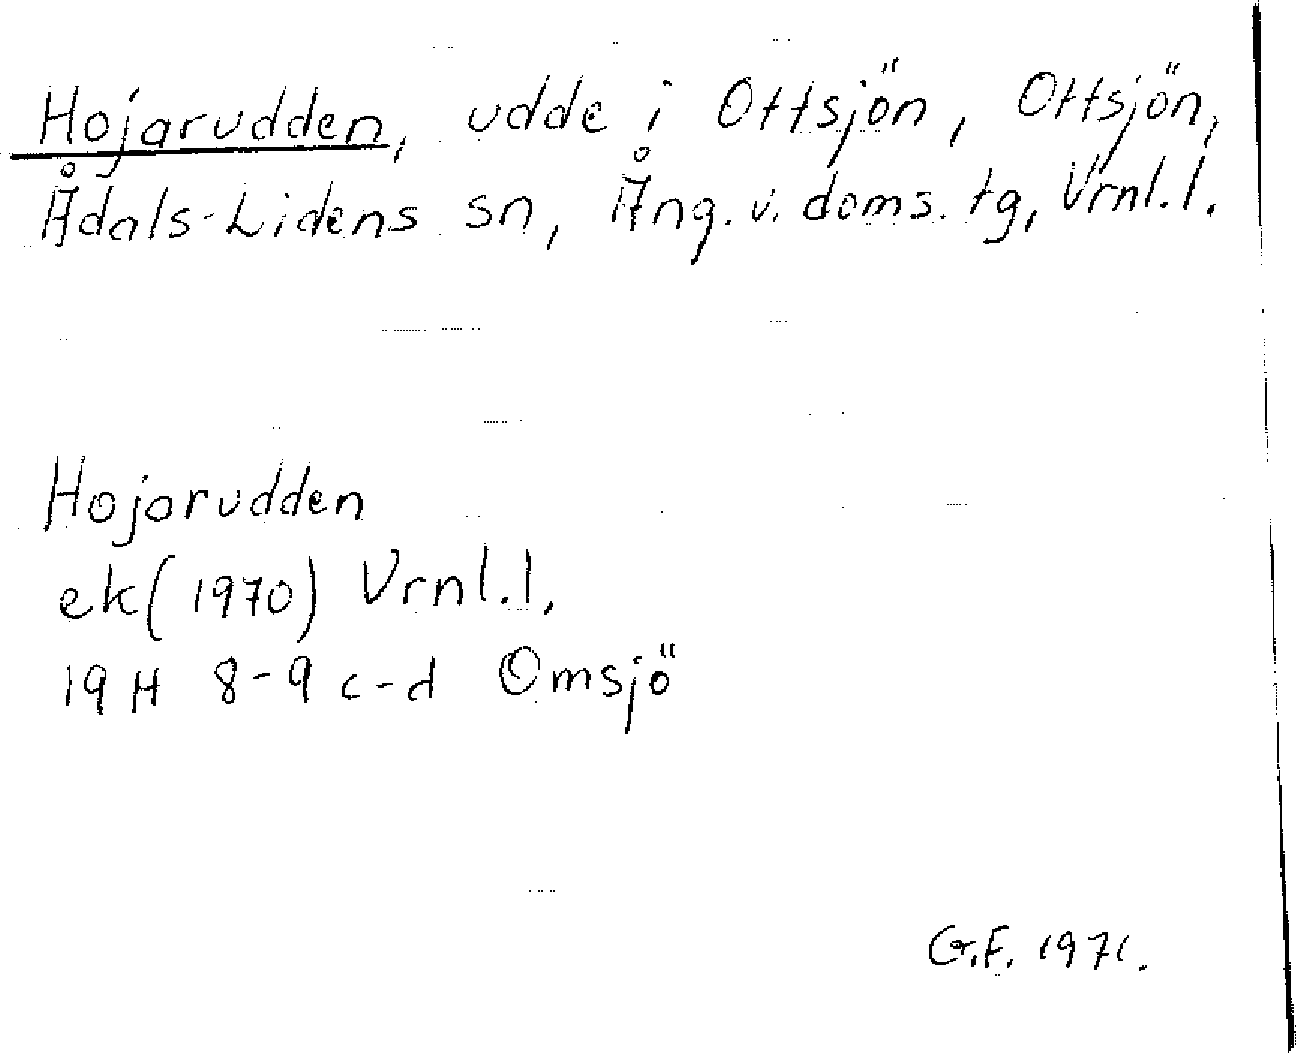 Hojarudden, udde i Ottsjön, Ottsjön,
Ådals-Lidens sn, Ång. v. doms. tg, Vrnl. l.
Hojarudden
ek (1970) Vrnl. l.
19 H 8-9 c-d Omsjö
G.F. 1971.